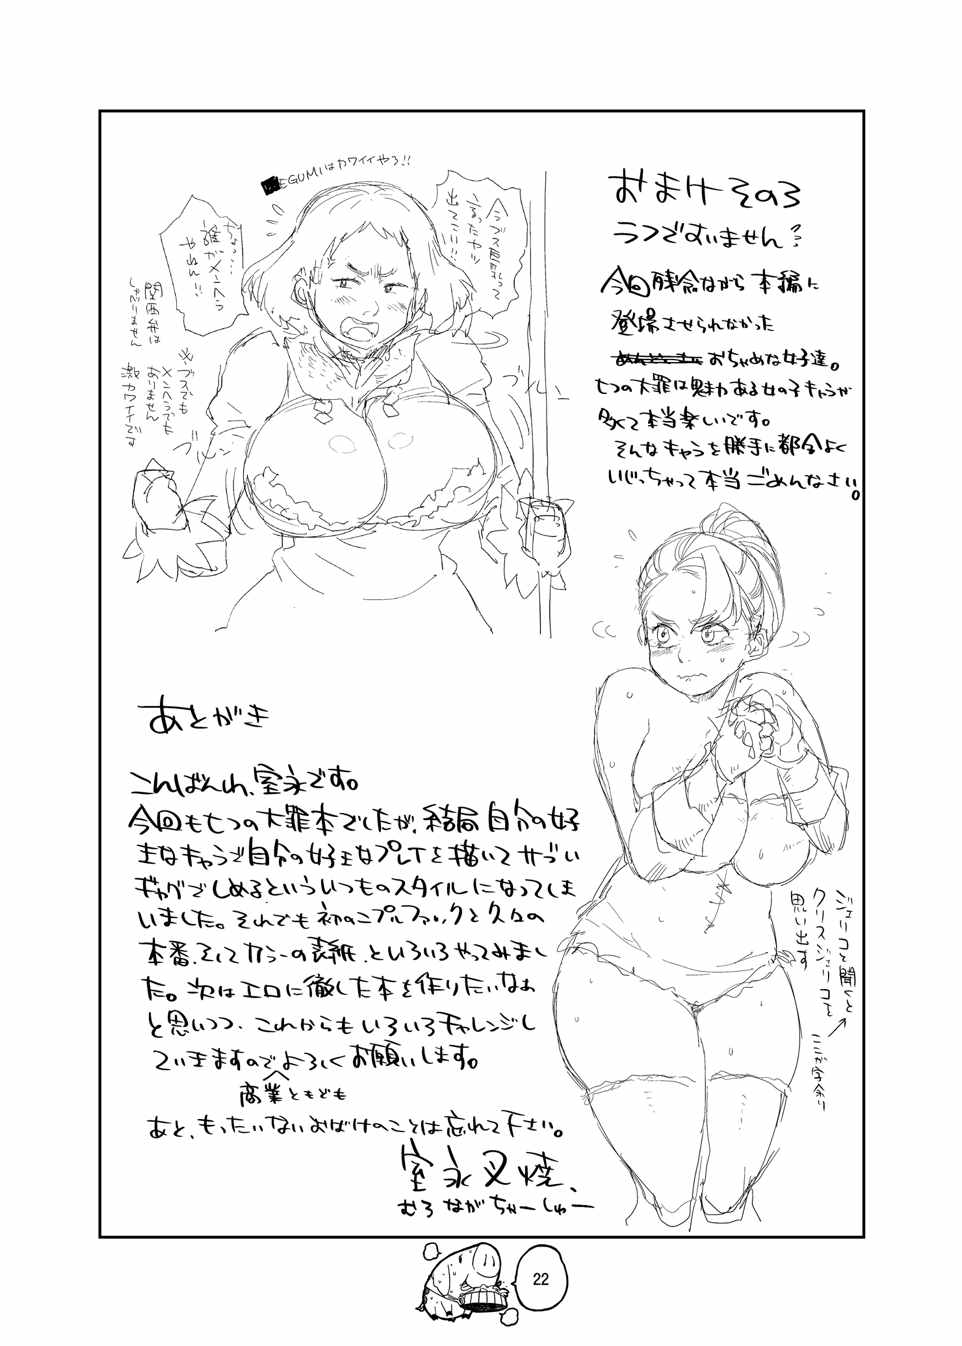 おまけその3
ラフですいません?
今回残念ながら本編に
登場させられなかった
おちゃめな女子達。
七つの大罪は魅力ある女の子キャラが
多くて本当楽しいです。
そんなキャラを勝手に都合よく
いじっちゃって本当ごめんなさい。
EGUMIはカワイイやろ!!
出てこい!!!
誰がメンヘラ
やねん!!
関西弁は
しゃべりません
ブスでも
メンヘラでも
ありません
激カワイイです
あとがき
こんばんわ、室永です。
今回も七つの大罪本でしたが、結局自分の好
きなキャラで自分の好きなプレイを描いてサブい
ギャグでしめるといういつものスタイルになってしま
いました。それでも初のニプルファックと久々の
本番、そしてカラーの表紙、といろいろやってみまし
た。次はエロに徹した本を作りたいなぁ
と思いつつ、これからもいろいろチャレンジし
ていきますのでよろしくお願いします。
商業ともども
あと、もったいないおばけのことは忘れて下さい。
室永叉焼、
むろながちゃーしゅー
ジェリコと聞くと
クリスジェリコを
思い出す
ここが字余り
22